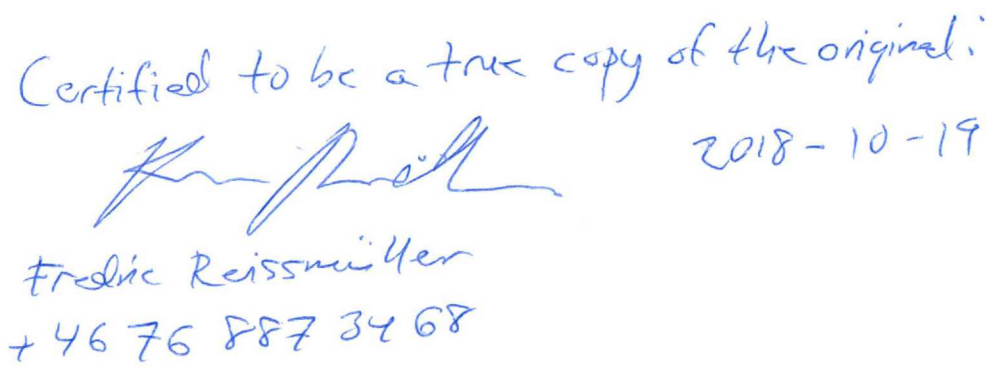 Certified to be a true copy of the original:
2018-10-19
Fredric Reissmüller
+46 76 887 34 68